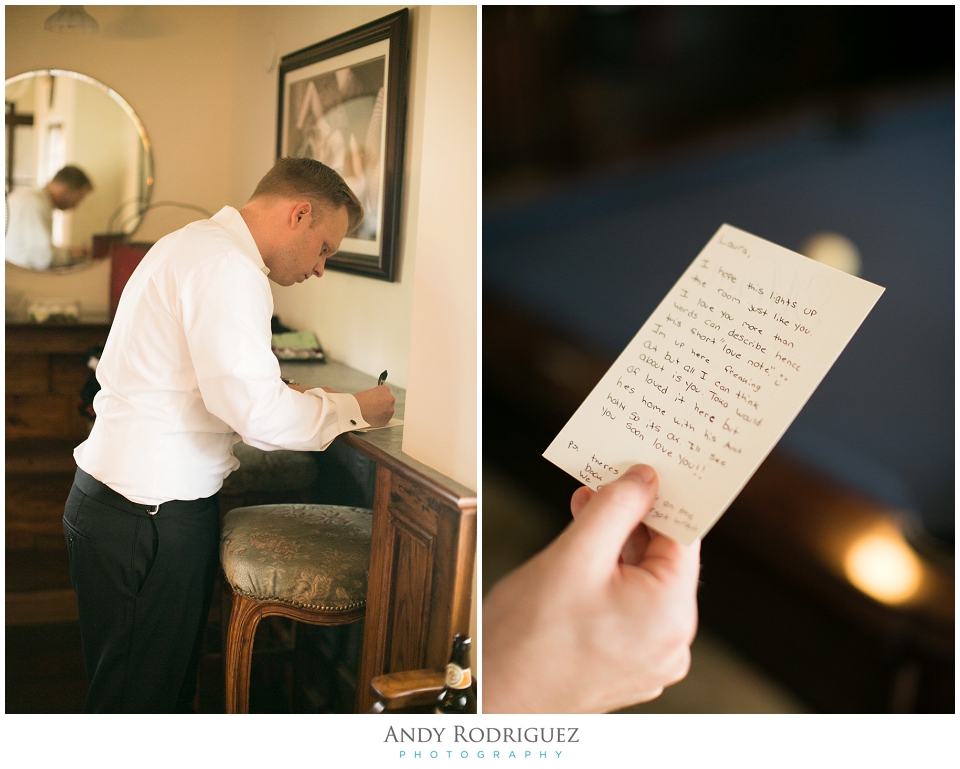 Laura,
I hope this lights up
the room just like you
I love you more than
words can describe hence
this short "love note"
I'm up here freaking
out but all I can think
about is you. Toko would
of loved it here but
hes home with his
so its ok I'll see
you soon love you!!
ps. theres
on the
We
ANDY RODRIGUEZ
PHOTOGRAPHY